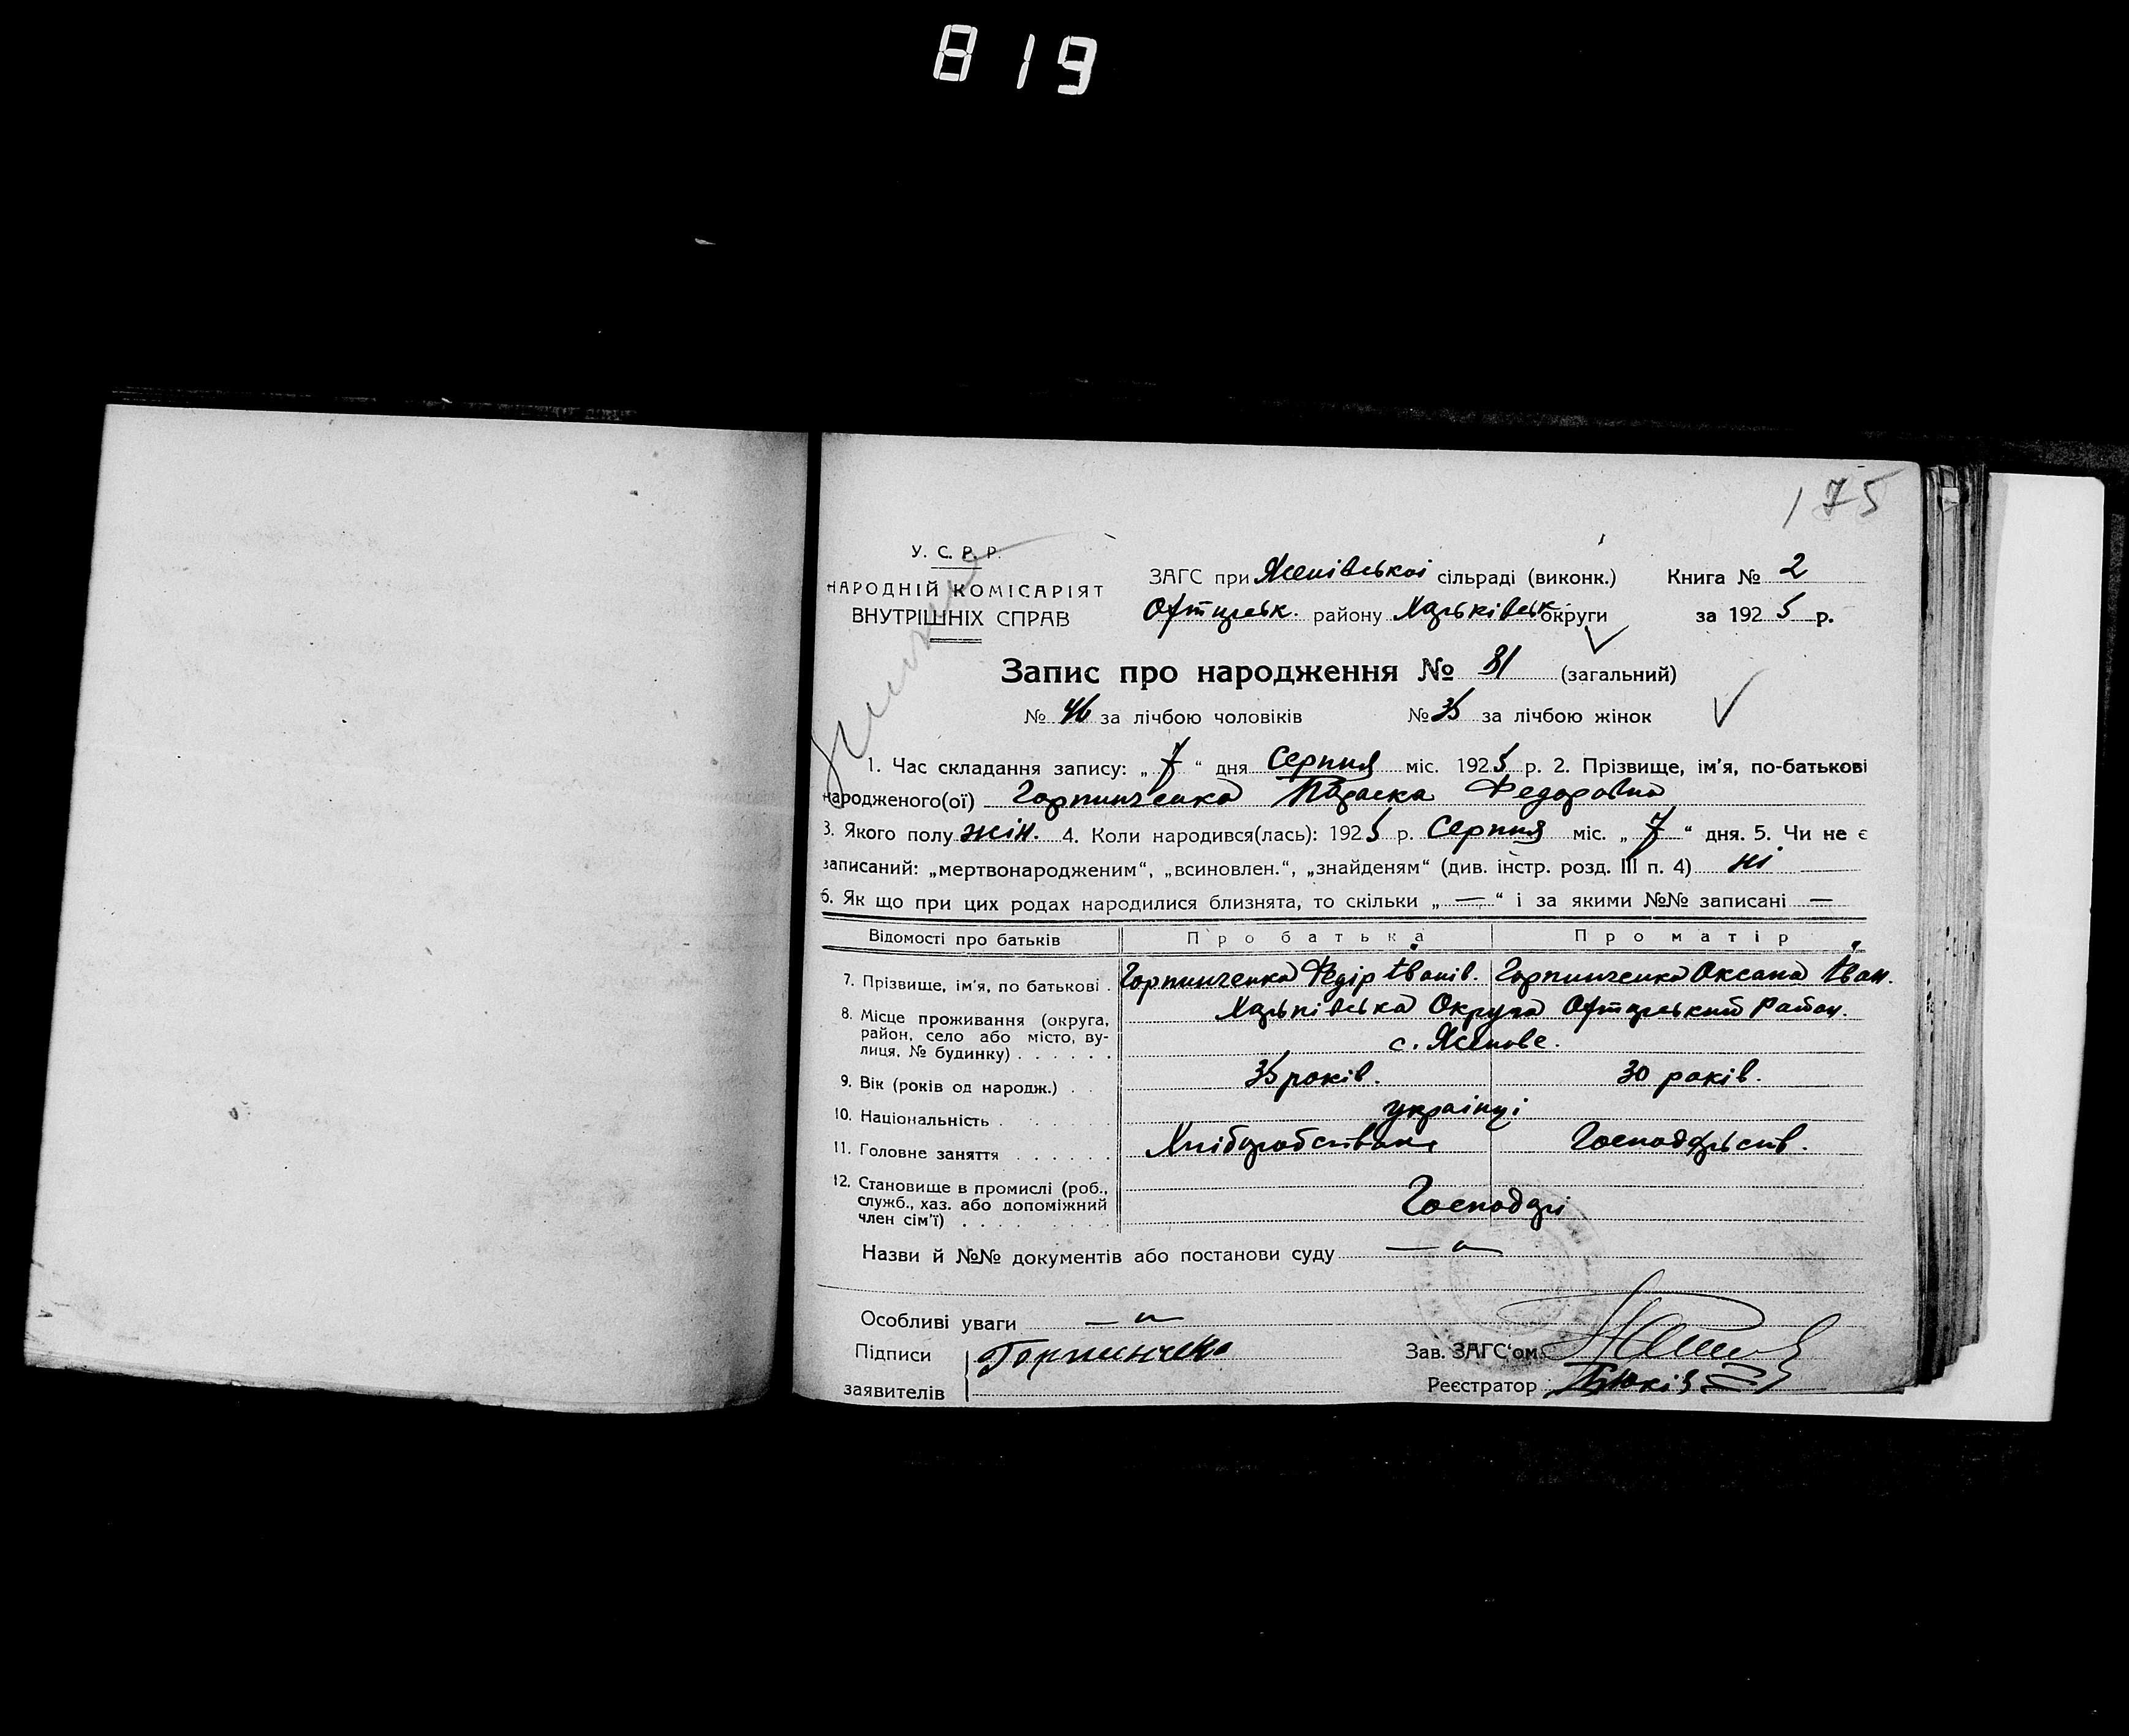 819
175
У. С. Р. Р.
НАРОДНІЙ КОМІСАРІЯТ
ВНУТРІШНІХ СПРАВ
ЗАГС при Ясенівської сільраді (виконк.) Книга № 2
Охтирськ. району Харьківськ. округи за 1925 р.
Запис про народження № 81 (загальний)
№ 46 за лічбою чоловіків № 35 за лічбою жінок
1. Час складання запису: „7“ дня Серпня міс. 1925 р. 2. Прізвище, ім'я, по-батькові
народженого(ої) Горпинченко Параска Федоровна
3. Якого полу жін. 4. Коли народився(лась): 1925 р. Серпня міс. „7“ дня. 5. Чи не є
записаний: „мертвонародженим“, „всиновлен.“, „знайденям“ (див. інстр. розд. III п. 4) ні
6. Як що при цих родах народилися близнята, то скільки „—“ і за якими №№ записані —
Відомості про батьків Про батька Про матір
7. Прізвище, ім'я, по батькові . Горпинченко Федір Іванів. Горпинченко Оксана Іван.
8. Місце проживання (округа, район, село або місто, вулиця, № будинку) . . . . . . Харьківська Округа Охтирський Район.
с. Ясенове.
9. Вік (років од народж.) . . 35 років. 30 років.
10. Національність . . . . . українці
11. Головне заняття . . . . . . Хліборобство Господарств.
12. Становище в промислі (роб., служб., хаз. або допоміжний член сім'ї) . . . . . . . . Господарі
Назви й №№ документів або постанови суду — " —
Особливі уваги — " —
Підписи заявителів Горпинченко
Зав. ЗАГС'ом
Реєстратор